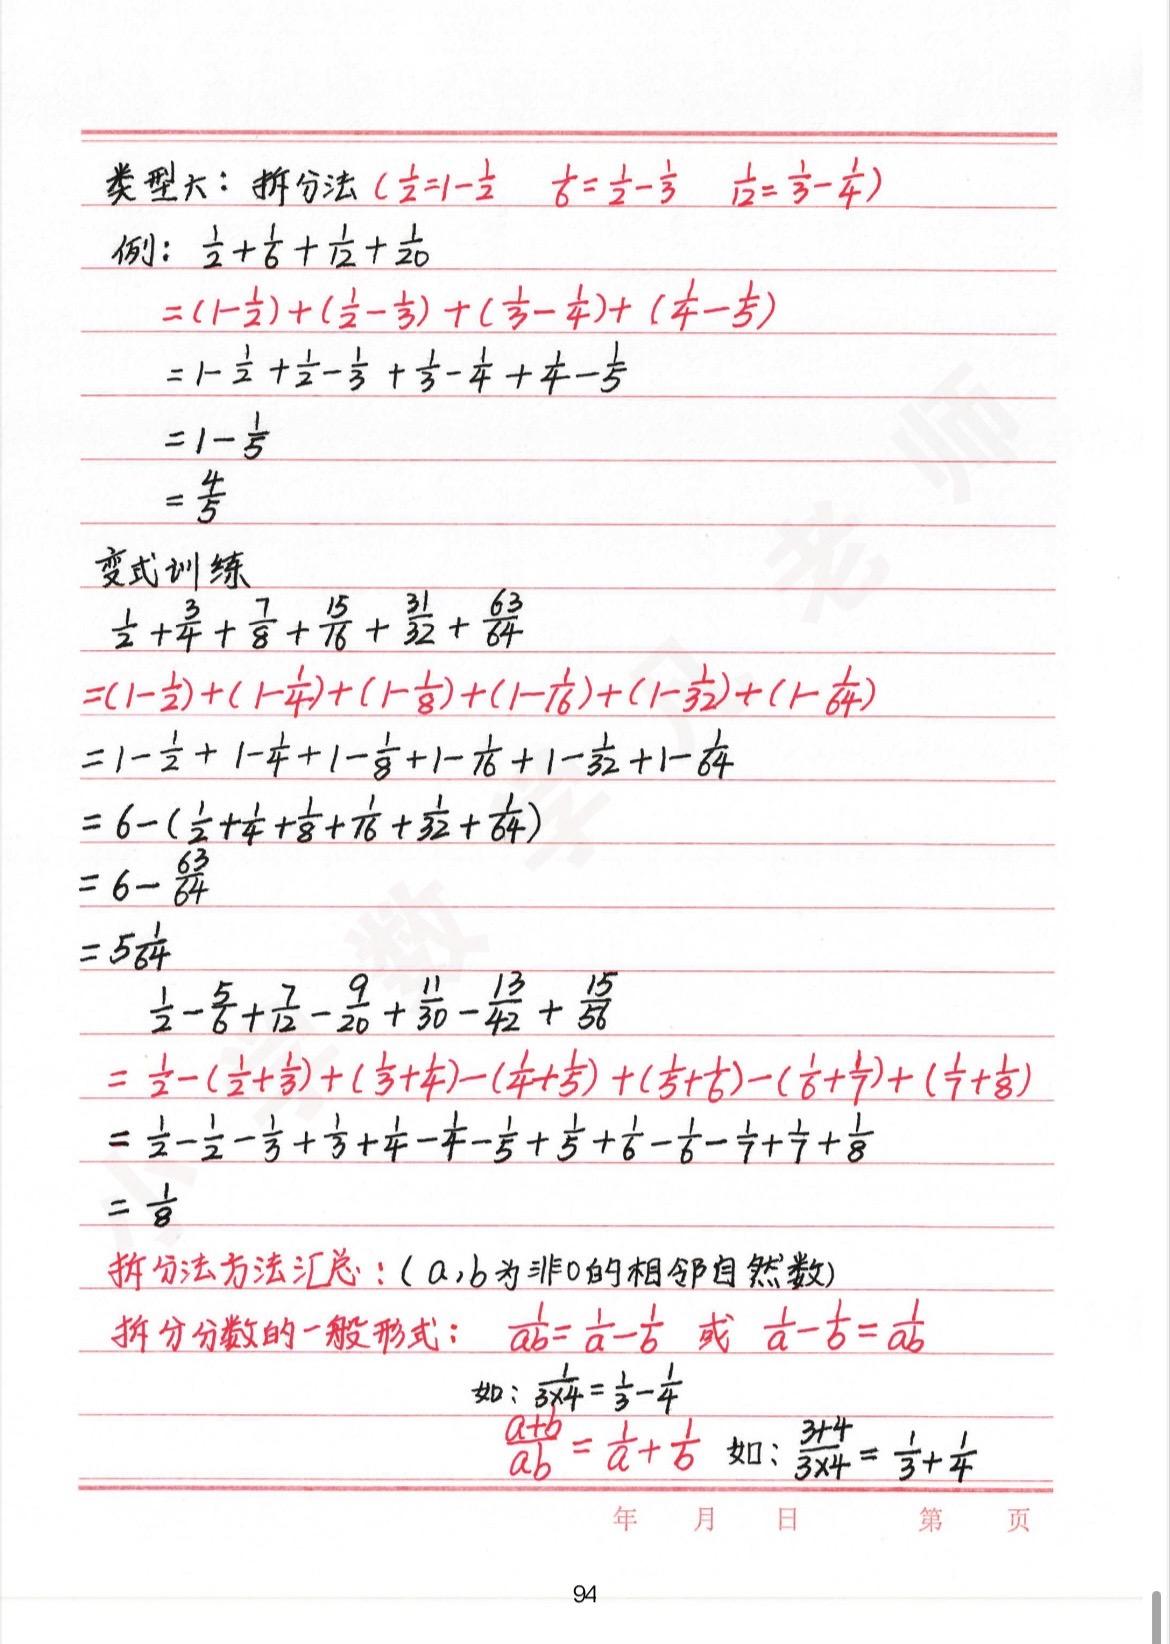 类型六：拆分法（1/2=1-1/2 1/6=1/2-1/3 1/12=1/3-1/4）
例：1/2+1/6+1/12+1/20
=(1-1/2)+(1/2-1/3)+(1/3-1/4)+(1/4-1/5)
=1-1/2+1/2-1/3+1/3-1/4+1/4-1/5
=1-1/5
=4/5
变式训练
1/2+3/4+7/8+15/16+31/32+63/64
=(1-1/2)+(1-1/4)+(1-1/8)+(1-1/16)+(1-1/32)+(1-1/64)
=1-1/2+1-1/4+1-1/8+1-1/16+1-1/32+1-1/64
=6-(1/2+1/4+1/8+1/16+1/32+1/64)
=6-63/64
=5 1/64
1/2-5/6+7/12-9/20+11/30-13/42+15/56
=1/2-(1/2+1/3)+(1/3+1/4)-(1/4+1/5)+(1/5+1/6)-(1/6+1/7)+(1/7+1/8)
=1/2-1/2-1/3+1/3+1/4-1/4-1/5+1/5+1/6-1/6-1/7+1/7+1/8
=1/8
拆分法方法汇总：（a,b为非0的相邻自然数）
拆分分数的一般形式：1/ab=1/a-1/b 或 1/a-1/b=1/ab
如：1/3×4=1/3-1/4
a+b/ab=1/a+1/b 如：3+4/3×4=1/3+1/4
年 月 日 第 页
94